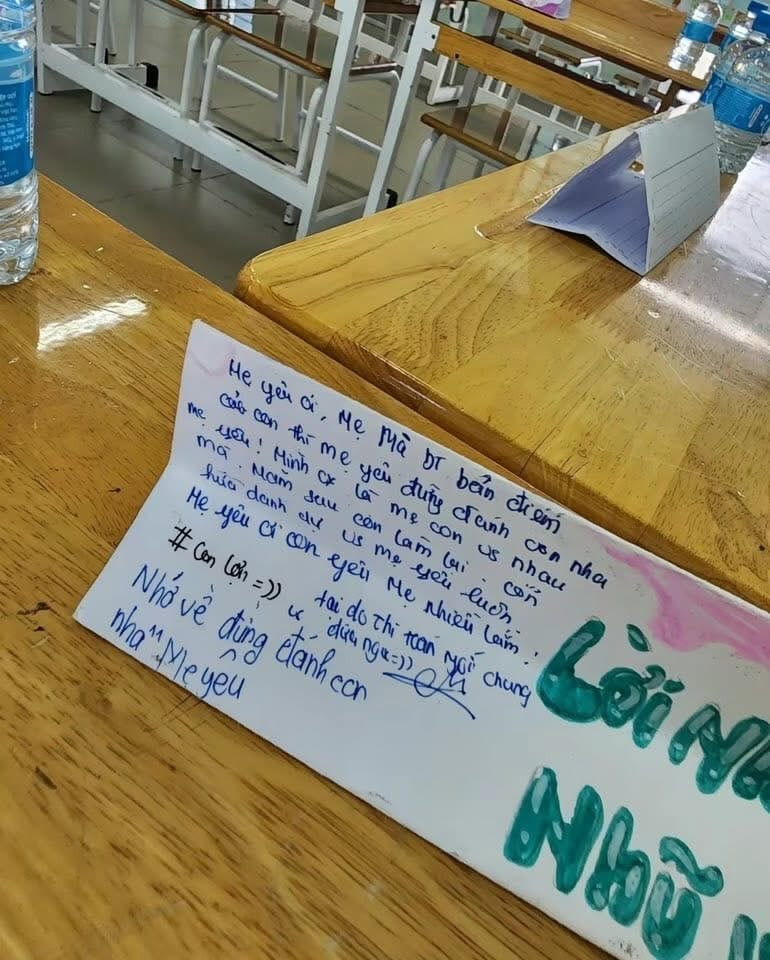 Mẹ yêu ơi, Mẹ Mà bt bản điểm
của con thì mẹ yêu đừng đánh con nha
mẹ yêu! Mình cx là mẹ con vs nhau
mà. Năm sau con làm lại. con
hứa danh dự vs mẹ yêu luôn
Mẹ yêu ơi con yêu Mẹ nhiều lắm!
#Con lớn =))
tại do thi toán ngồi chung
vs đứa ngu =))
Nhớ về đừng đánh con
nha "Mẹ yêu
Lời Nh
Nhữ